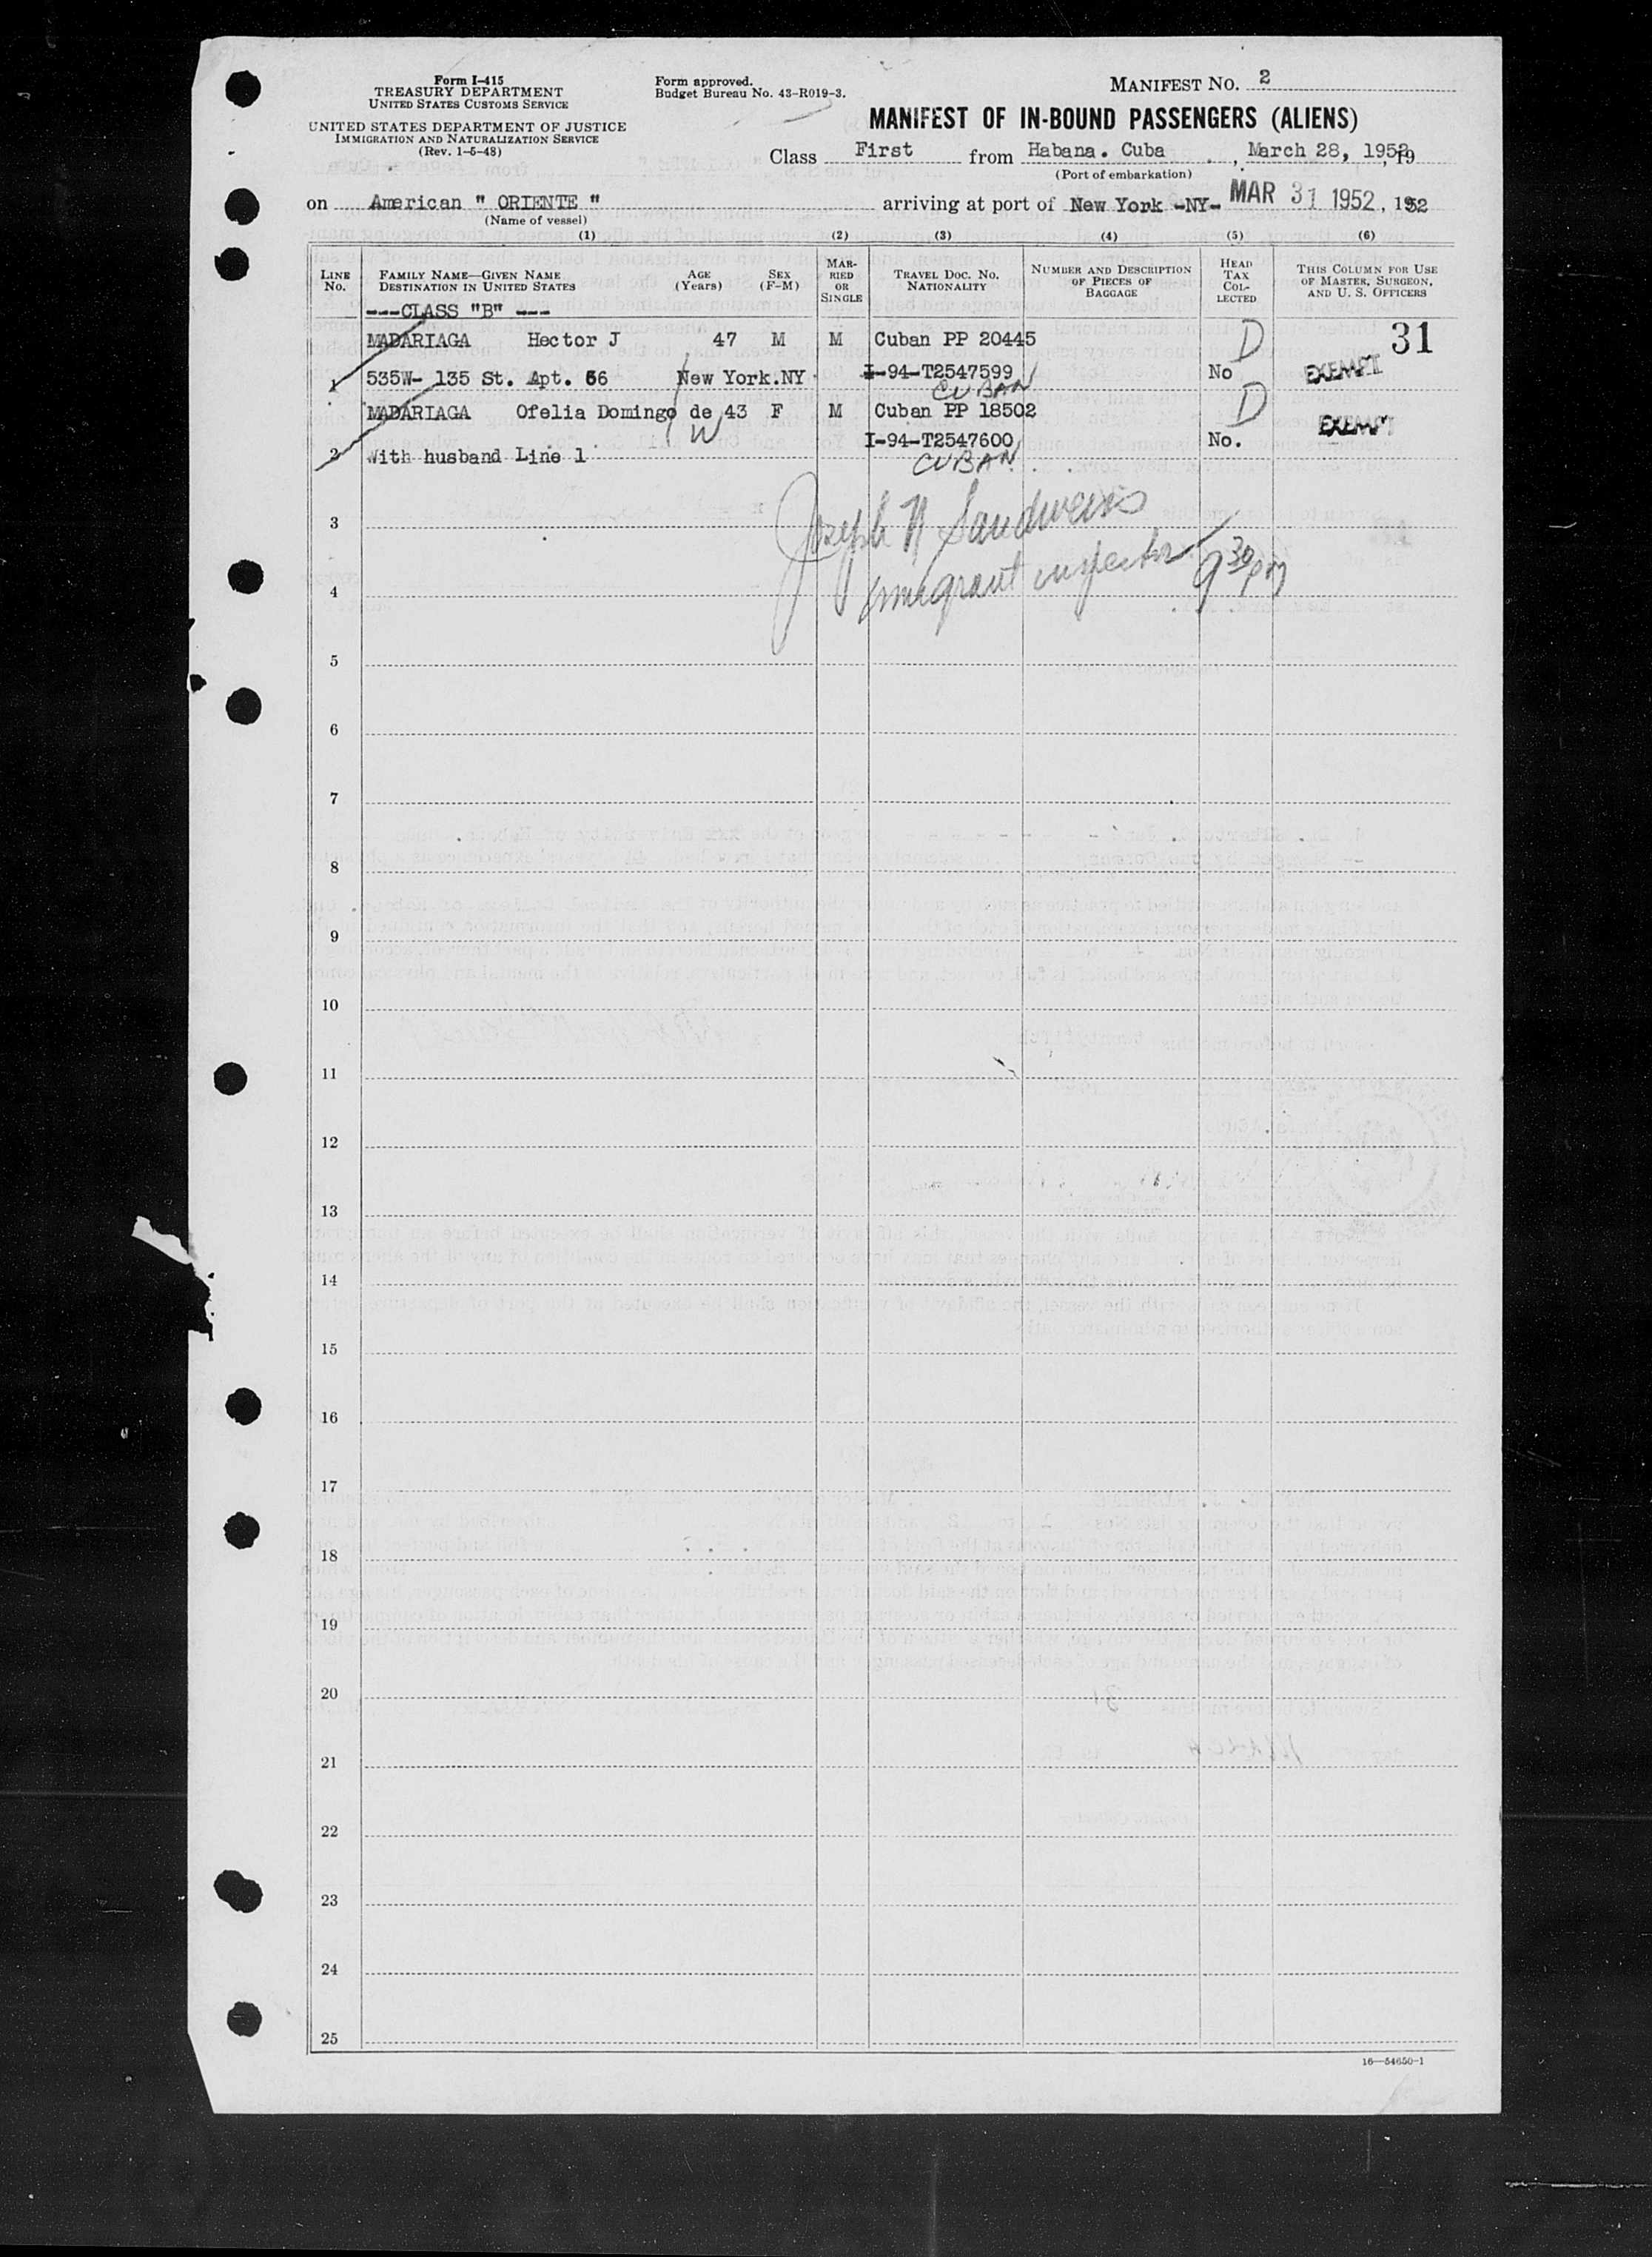 Form I-415
TREASURY DEPARTMENT
UNITED STATES CUSTOMS SERVICE
UNITED STATES DEPARTMENT OF JUSTICE
IMMIGRATION AND NATURALIZATION SERVICE
(Rev. 1-5-48)
Form approved.
Budget Bureau No. 43-R019-3.
MANIFEST NO. 2
MANIFEST OF IN-BOUND PASSENGERS (ALIENS)
Class First from Habana. Cuba, March 28, 1952, 19
(Port of embarkation)
on American " ORIENTE " arriving at port of New York -NY- MAR 31 1952, 1952
(Name of vessel)
(1) (2) (3) (4) (5) (6)
LINE NO.
FAMILY NAME—GIVEN NAME
DESTINATION IN UNITED STATES
AGE (Years)
SEX (F-M)
MARRIED OR SINGLE
TRAVEL DOC. NO.
NATIONALITY
NUMBER AND DESCRIPTION
OF PIECES OF
BAGGAGE
HEAD TAX COLLECTED
THIS COLUMN FOR USE
OF MASTER, SURGEON,
AND U. S. OFFICERS
---CLASS "B" ---
MADARIAGA Hector J 47 M M Cuban PP 20445 D 31
1 535W- 135 St. Apt. 66 New York.NY I-94-T2547599 No EXEMPT
CUBAN
MADARIAGA Ofelia Domingo de 43 F M Cuban PP 18502 D EXEMPT
W
I-94-T2547600 No.
2 With husband Line 1 CUBAN
Joseph N Sandweiss
3
Immigrant inspector 9 30 pm
4
5
6
7
8
9
10
11
12
13
14
15
16
17
18
19
20
21
22
23
24
25
16—54650-1